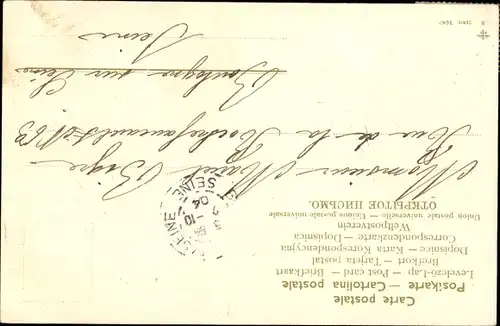 Carte postale
Postkarte — Cartolina postale
Levelező-Lap — Post card — Briefkaart
Brefkort — Tarjeta postal
Dopisnice — Karta Korespondencyjna
Correspondenzkarte — Dopisnica
Weltpostverein
Union postale universelle — Unione postale universale
ОТКРЫТОЕ ПИСЬМО.
SEINE
04
Monsieur Marcel Bigre
Rue de la Rochefoucauld No 63
Boulogne sur Seine
Seine